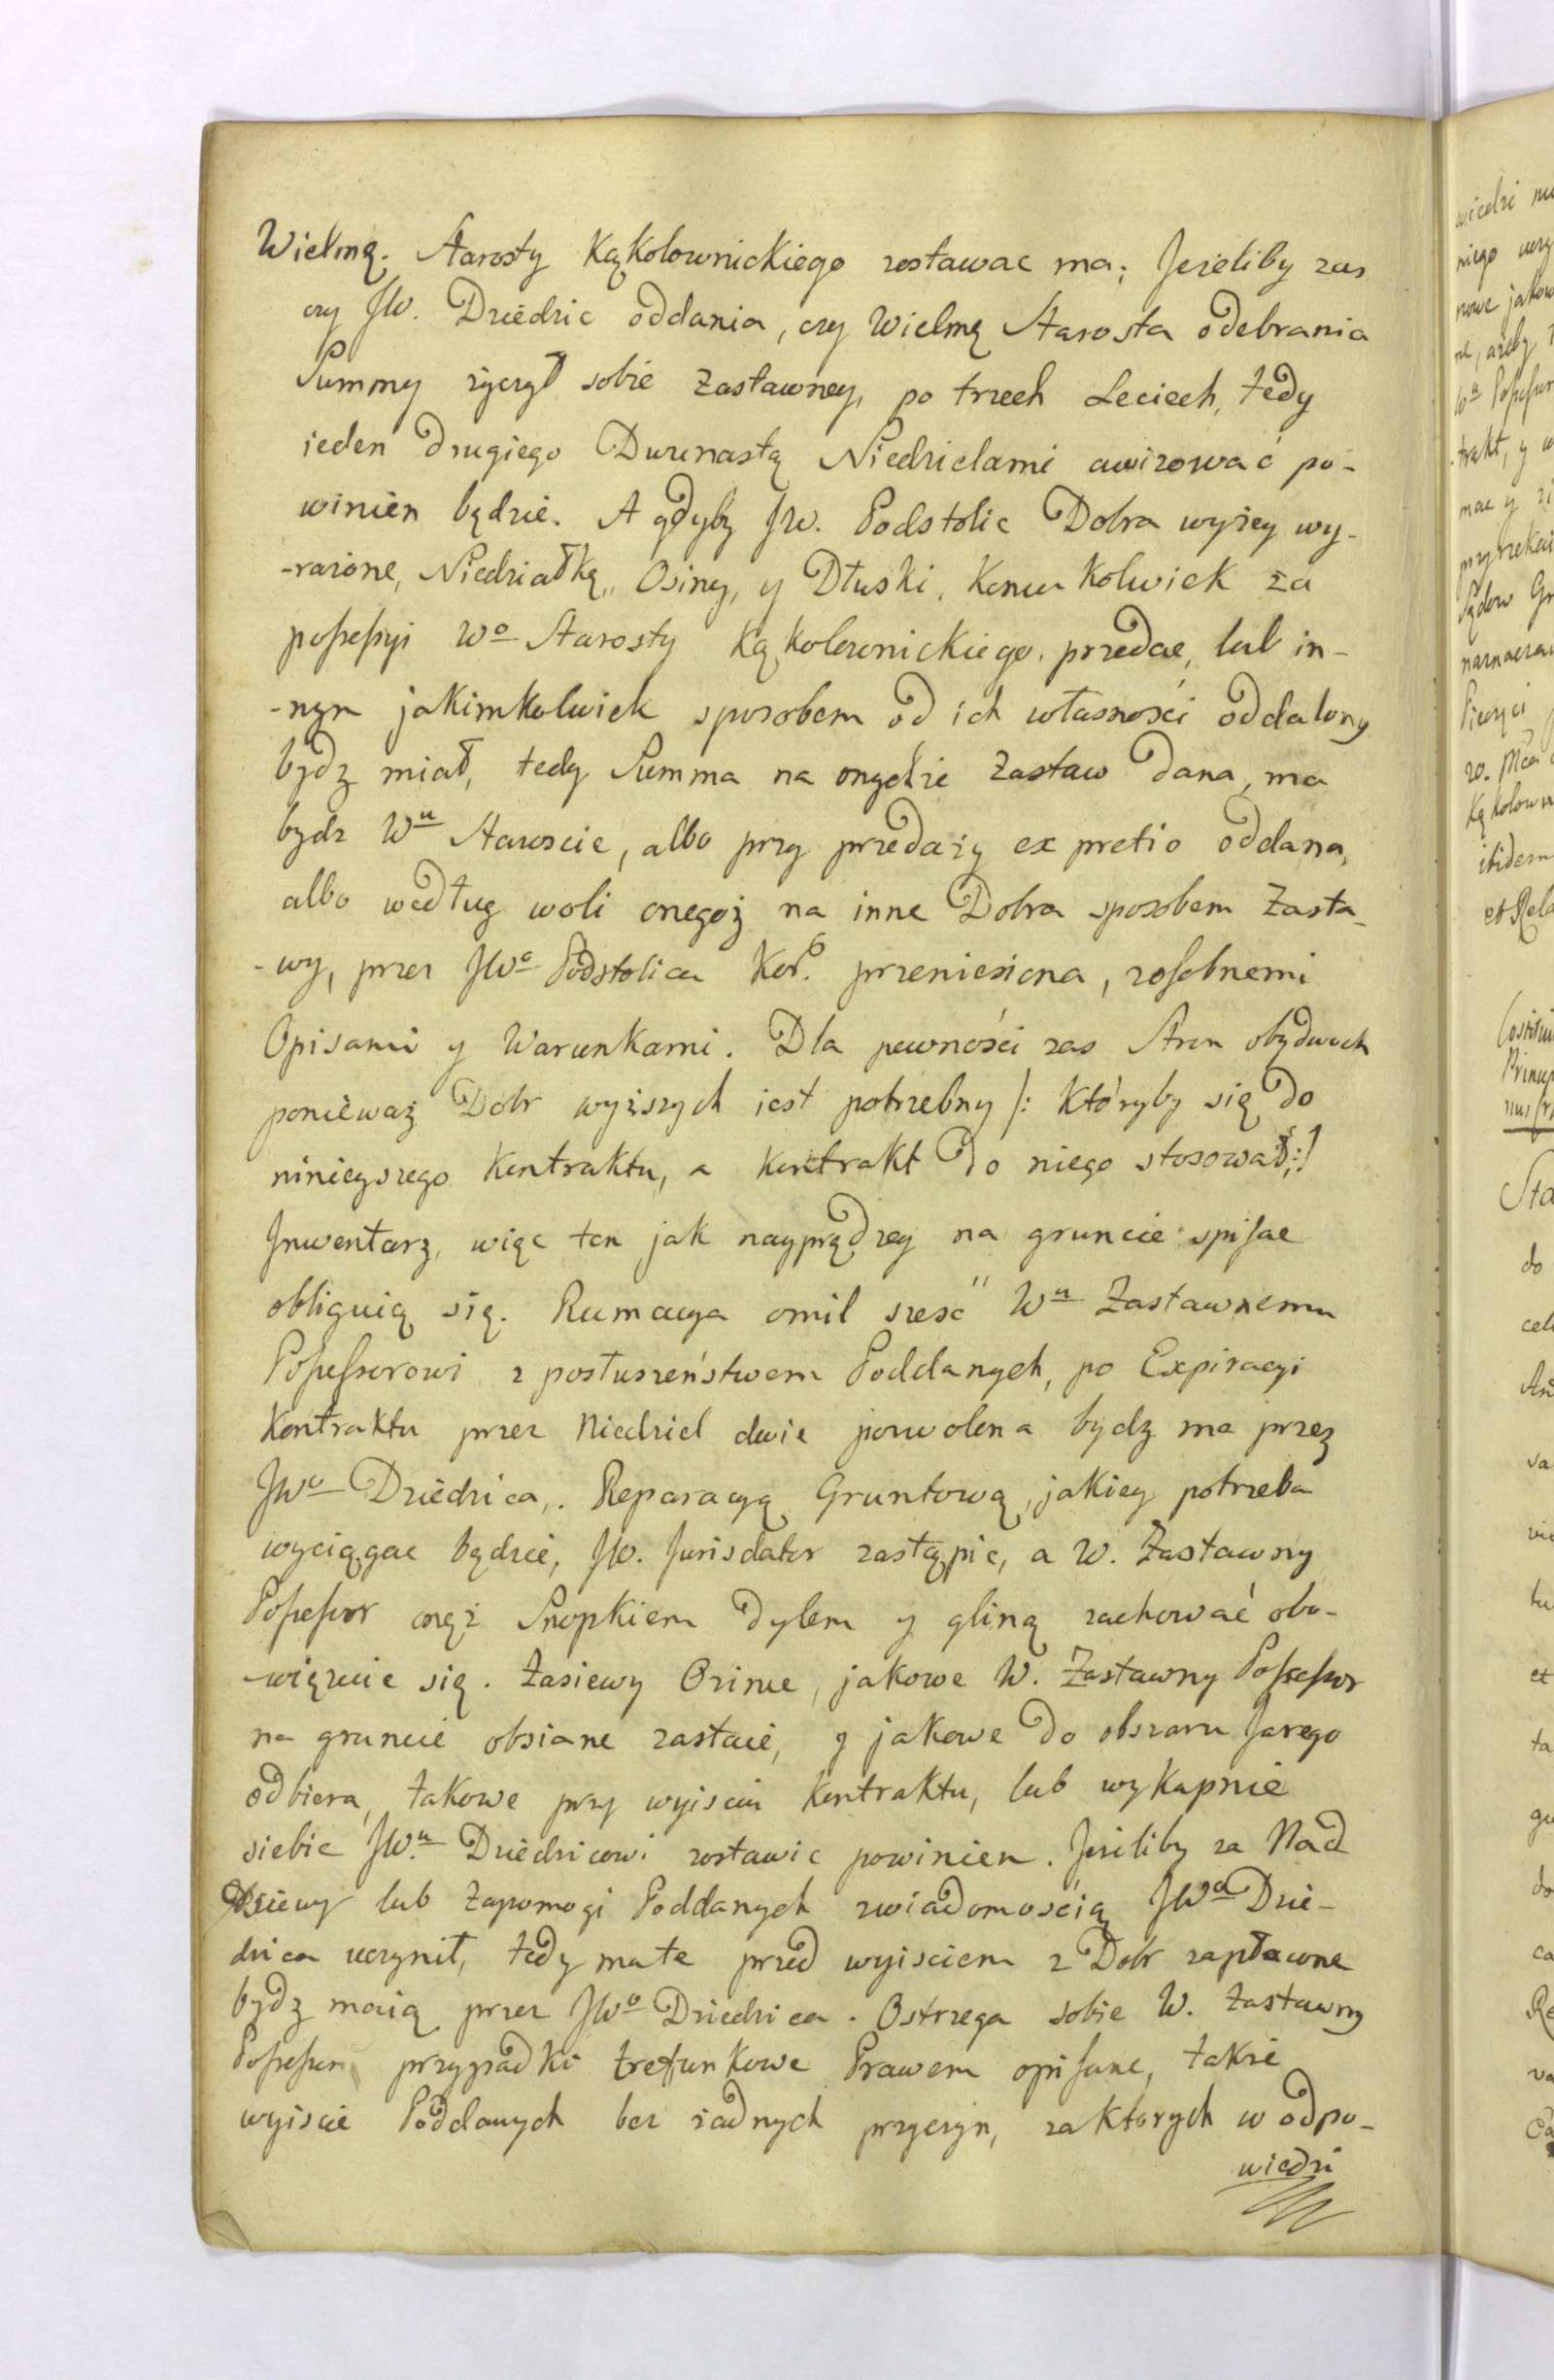 Wielmą. Starosty Kąkolownickiego zostawac ma; Jezeliby zas
czy JW. Dziedzic oddania, czy Wielmą Starosta odebrania
Summy zyczył sobie Zastawney, po trzech Leciech, tedy
ieden drugiego Dwunastą Niedzielami awizować po-
winien będzie. A gdyby JW. Podstolic Dobra wyżey wy-
-rażone, Niedziałkę,, Osiny, y Dłuski, Komu kolwiek za
possessyi Wo Starosty Kąkolownickiego. przedac, lub in-
-nym jakimkolwiek sposobem od ich własności oddalony
bydź miał, tedy Summa na onychże Zastaw dana, ma
bydz Wu Staroscie, albo przy przedaży ex pretio oddana,
albo według woli onegoż na inne Dobra sposobem Zasta-
-wy, przez JWo Podstolica Kor. przeniesiona, zosobnemi
Opisami y Warunkami. Dla pewności zas Stron obydwuch
ponieważ Dobr wyższych iest potrzebny /: Któryby się do
ninieyszego Kontraktu, a kontrakt do niego stosował :/
Inwentarz, więc ten jak nayprądzey na gruncie spisac
obliguią się. Rumacya omil szesć Wu Zastawnemu
Possessorowi z posłuszeństwem Poddanych, po Expiracyi
Kontraktu przez Niedziel dwie pozwolena bydź ma przez
JWo Dziedzica,. Reparacyą Gruntową, jakiey potrzeba
wyciągac będzie, JW. Jurisdator zastąpic, a W. Zastawny
Possessor onęż Snopkiem dylem y gliną zachować obo-
-więzuie się. Zasiewy Ozime, jakowe W. Zastawny Possessor
na gruncie obsiane zastaie, y jakowe do obszaru Jarego
odbiera, takowe przy wyisciu kontraktu, lub wykupnie
siebie JW.u Dziedzicowi zostawic powinien. Jeśliby za Nad
Dsiewy lub Zapomogi Poddanych zwiadomością JWo Dzie-
dzica uczynił, tedy mate przed wyisciem z Dobr zapłacone
bydź maią przez JWo Dziedzica. Ostrzega sobie W. Zastawny
Possessor przypadki trefunkowe Prawem opisane, takze
wyiscie Poddanych bez żadnych przyczyn, zaktorych w odpo-
wiedzi